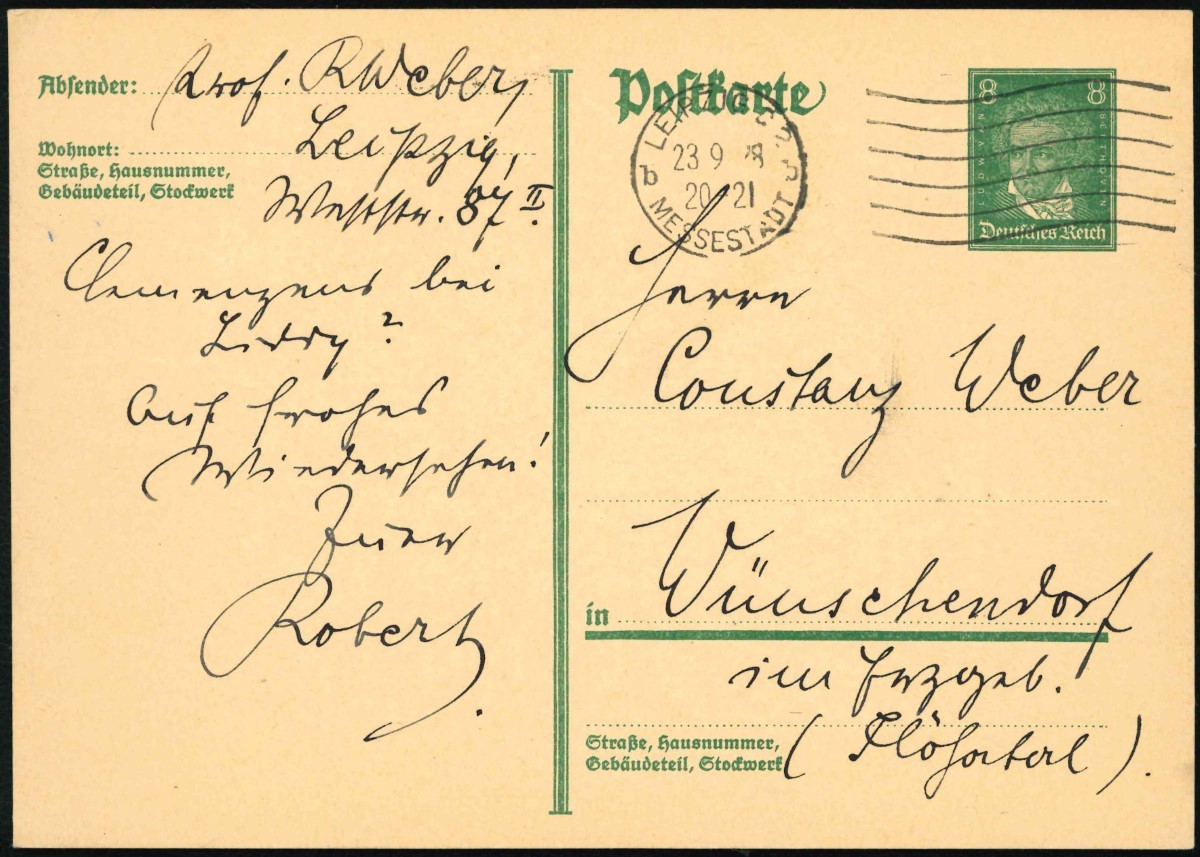 Absender: Prof. RWeber,
Wohnort: Leipzig,
Straße, Hausnummer,
Gebäudeteil, Stockwerk
Weststr. 87 II.
Clemenzens bei
Liddy?
Auf frohes
Wiedersehen!
Euer
Robert.
Postkarte
LEIPZIG
23 9 28
20 21
b
MESSESTADT
8 8
LUDWIG VAN BEETHOVEN
Deutsches Reich
Herrn
Constanz Weber
in Wünschendorf
im Erzgeb.
Straße, Hausnummer,
Gebäudeteil, Stockwerk
(Flöhatal).